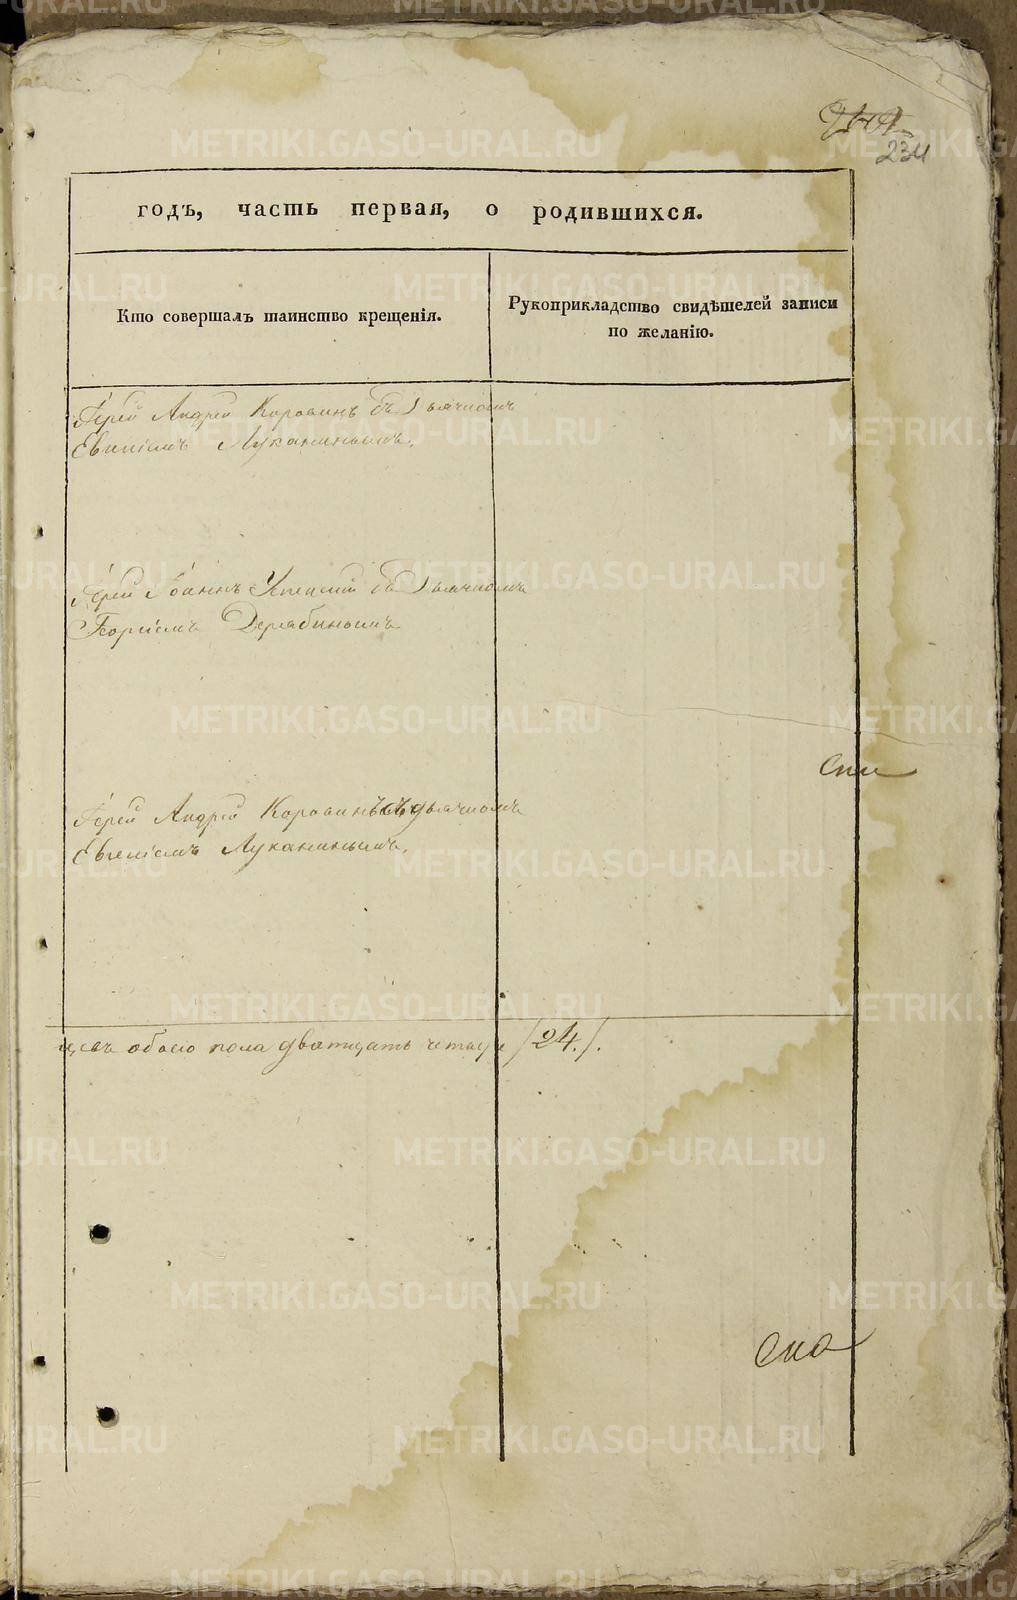 234
годъ, часть первая, о родившихся.
Кто совершалъ таинство крещенія.
Рукоприкладство свидѣтелей записи
по желанію.
Іерей Андрей Коровинъ съ Дьячкомъ
Евгеніемъ Луканинымъ.
Іерей Іоаннъ Успенскій съ Дьячкомъ
Георгіемъ Дерябинымъ
Іерей Андрей Коровинъ съ дьячкомъ
Евгеніемъ Луканинымъ.
обоего пола дватцать четыре /24./.
METRIKI.GASO-URAL.RU